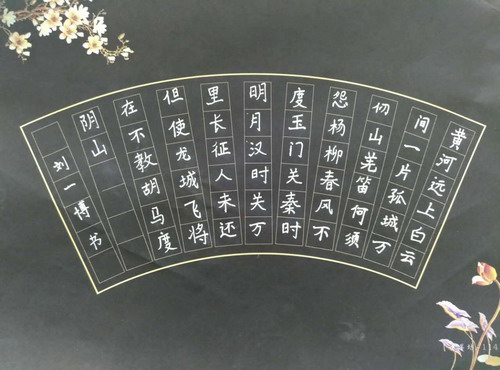 黄河远上白云
间一片孤城万
仞山羌笛何须
怨杨柳春风不
度玉门关秦时
明月汉时关万
里长征人未还
但使龙城飞将
在不教胡马度
阴山
刘一博书